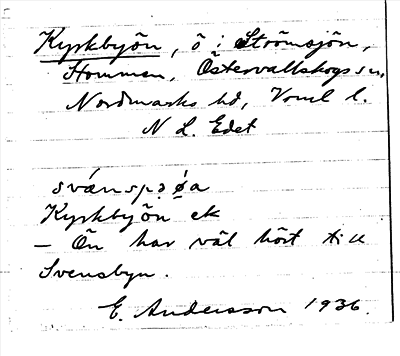 Kyrkbyön, ö i Strömsjön,
Hommen, Östervallskogs sn,
Nordmarks hd, Vrml l.
N L. Edet
Kyrkbyön ek
– Ön har väl hört till
Svensbyn.
E. Andersson 1936.